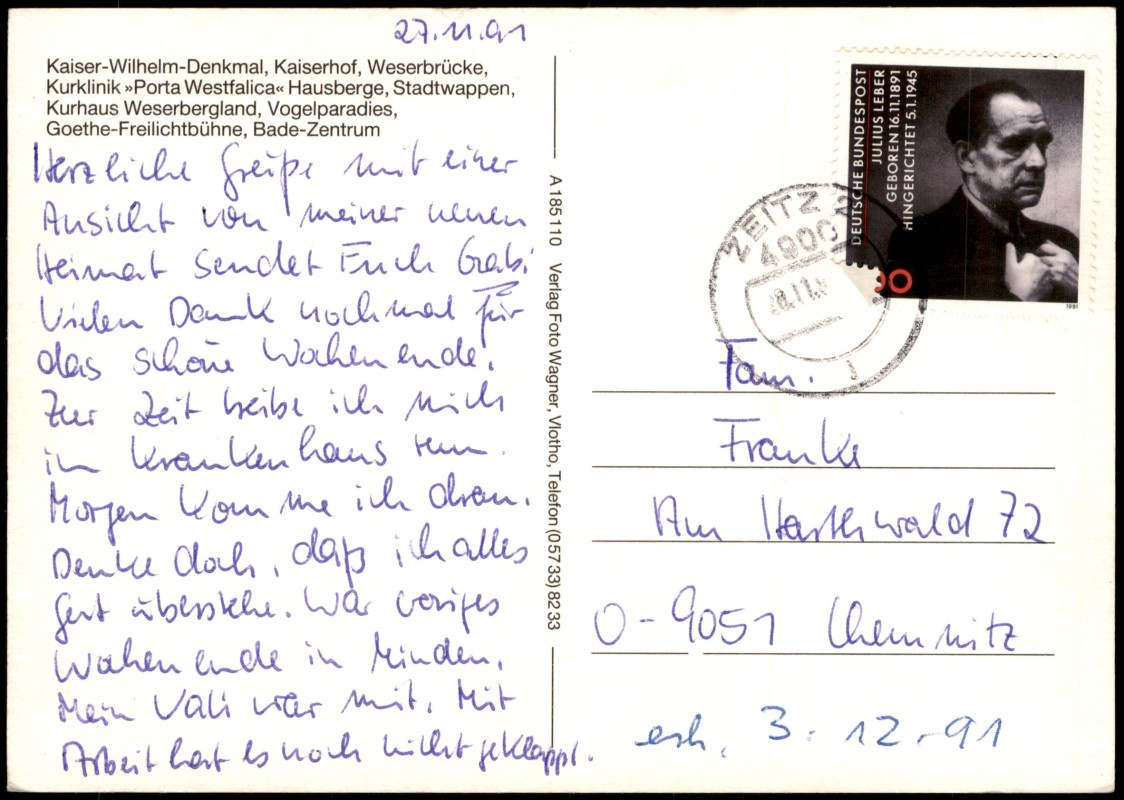 27.11.91
Kaiser-Wilhelm-Denkmal, Kaiserhof, Weserbrücke,
Kurklinik »Porta Westfalica« Hausberge, Stadtwappen,
Kurhaus Weserbergland, Vogelparadies,
Goethe-Freilichtbühne, Bade-Zentrum
Herzliche Grüße mit einer
Ansicht von meiner neuen
Heimat sendet Euch Gabi
Vielen Dank nochmal für
das schöne Wochenende.
Zur Zeit treibe ich mich
im Krankenhaus rum.
Morgen komme ich dran.
Denke doch, daß ich alles
gut überstehe. War voriges
Wochenende in Minden.
Mein Vati war mit. Mit
Arbeit hat es noch nicht geklappt.
A 185110 Verlag Foto Wagner, Vlotho, Telefon (05733) 8233
DEUTSCHE BUNDESPOST
JULIUS LEBER
GEBOREN 16.11.1891
HINGERICHTET 5.1.1945
1991
ZEITZ 2
4900
Fam.
Franke
Am Harthwald 72
O-9051 Chemnitz
erh. 3.12.91